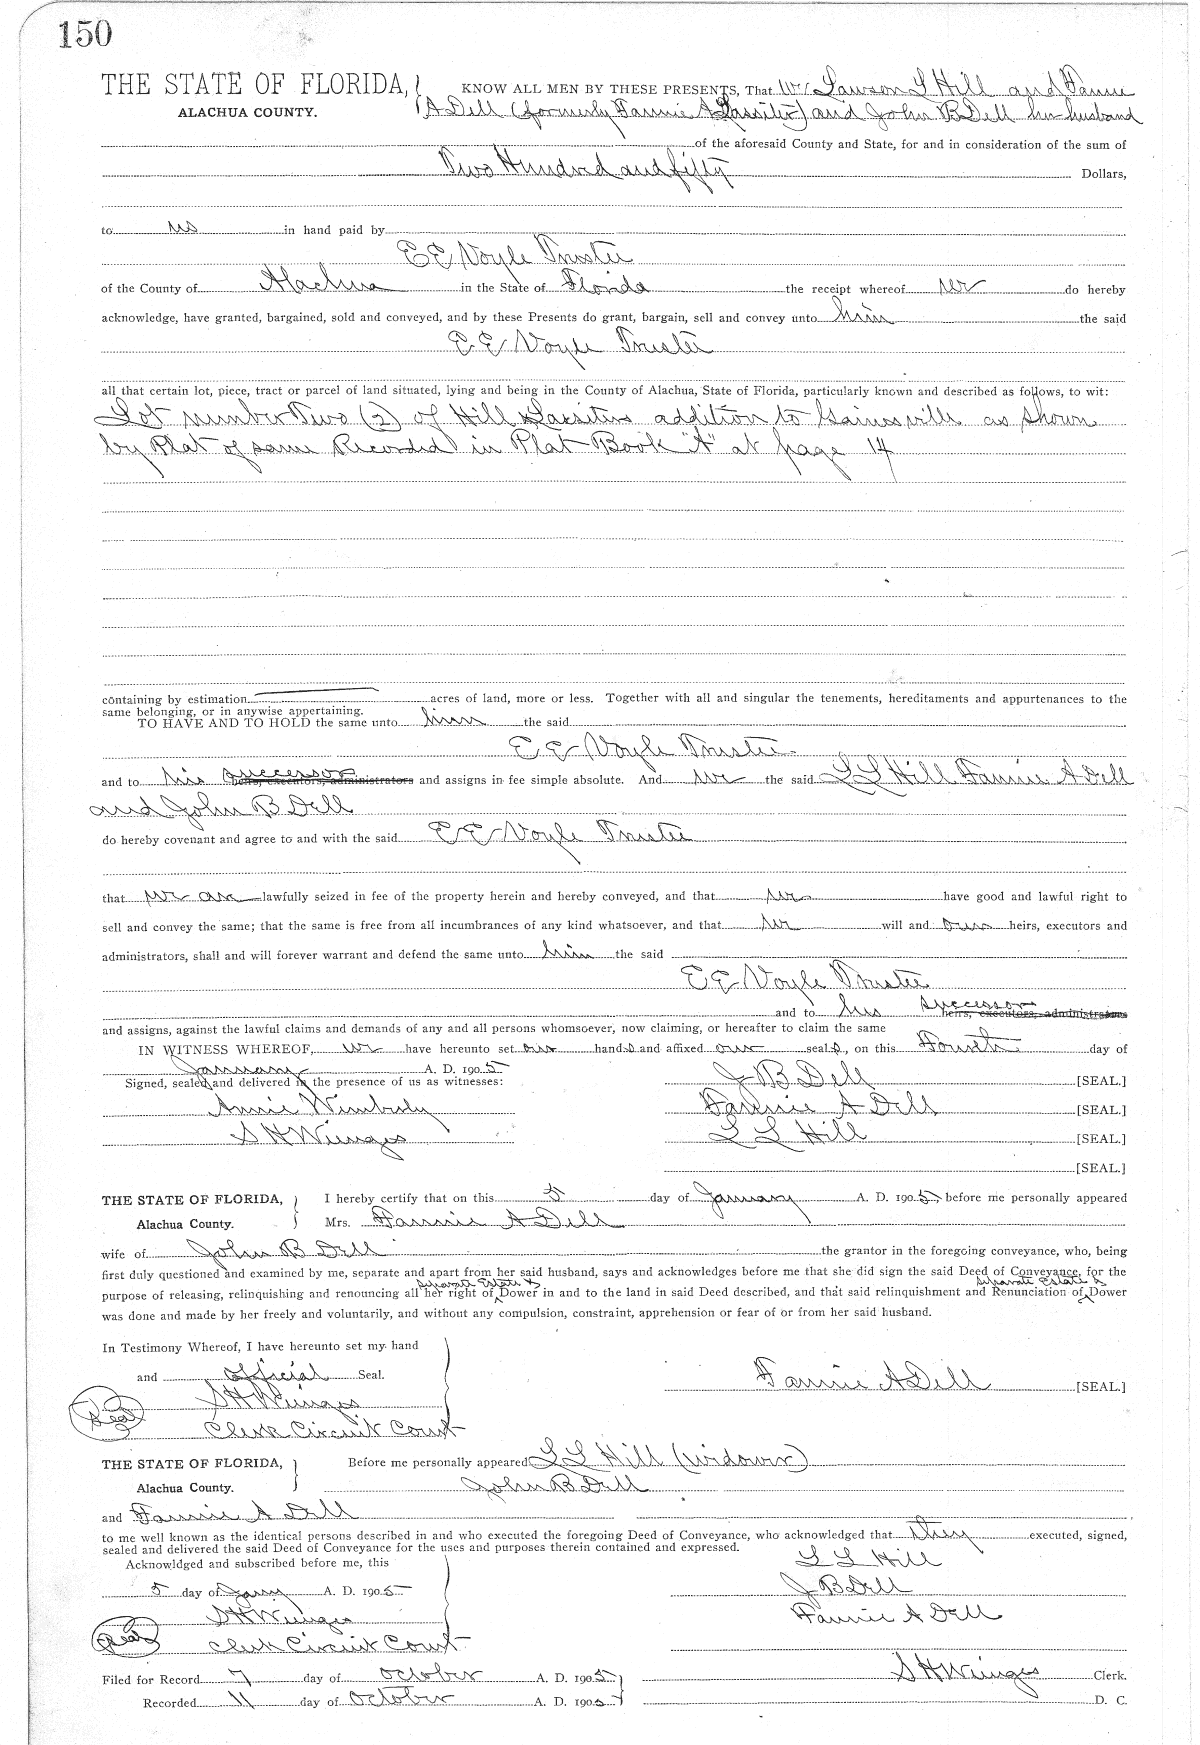 150
THE STATE OF FLORIDA, KNOW ALL MEN BY THESE PRESENTS, That We Lawson L Hill and Fannie
ALACHUA COUNTY. A Dell (formerly Fannie A Lassiter) and John B Dell her husband
of the aforesaid County and State, for and in consideration of the sum of
Two Hundred and fifty Dollars,
to us in hand paid by
E E Voyle Trustee
of the County of Alachua in the State of Florida the receipt whereof we do hereby
acknowledge, have granted, bargained, sold and conveyed, and by these Presents do grant, bargain, sell and convey unto him the said
E E Voyle Trustee
all that certain lot, piece, tract or parcel of land situated, lying and being in the County of Alachua, State of Florida, particularly known and described as follows, to wit:
Lot number Two (2) of Hill Lassiters addition to Gainesville as shown
by Plat of same Recorded in Plat Book "A" at page 14
containing by estimation acres of land, more or less. Together with all and singular the tenements, hereditaments and appurtenances to the
same belonging, or in anywise appertaining.
TO HAVE AND TO HOLD the same unto him the said
E E Voyle Trustee
and to his successor heirs, executors, administrators and assigns in fee simple absolute. And we the said L L Hill Fannie A Dell
and John B Dell
do hereby covenant and agree to and with the said E E Voyle Trustee
that we are lawfully seized in fee of the property herein and hereby conveyed, and that we have good and lawful right to
sell and convey the same; that the same is free from all incumbrances of any kind whatsoever, and that we will and our heirs, executors and
administrators, shall and will forever warrant and defend the same unto him the said
E E Voyle Trustee
and to his successor heirs, executors, administrators
and assigns, against the lawful claims and demands of any and all persons whomsoever, now claiming, or hereafter to claim the same
IN WITNESS WHEREOF, we have hereunto set our hands and affixed our seals, on this Fourth day of
January A. D. 1905
Signed, sealed and delivered in the presence of us as witnesses: J B Dell [SEAL.]
Annie Wimberly Fannie A Dell [SEAL.]
S H Wienges L L Hill [SEAL.]
[SEAL.]
THE STATE OF FLORIDA, I hereby certify that on this 5 day of January A. D. 1905 before me personally appeared
Alachua County. Mrs. Fannie A Dell
wife of John B Dell the grantor in the foregoing conveyance, who, being
first duly questioned and examined by me, separate and apart from her said husband, says and acknowledges before me that she did sign the said Deed of Conveyance, for the
purpose of releasing, relinquishing and renouncing all her right of separate Estate & Dower in and to the land in said Deed described, and that said relinquishment and Renunciation of separate Estate & Dower
was done and made by her freely and voluntarily, and without any compulsion, constraint, apprehension or fear of or from her said husband.
In Testimony Whereof, I have hereunto set my hand
and official Seal. Fannie A Dell [SEAL.]
S H Wienges
Seal Clerk Circuit Court
THE STATE OF FLORIDA, Before me personally appeared L L Hill (widower)
Alachua County. John B Dell
and Fannie A Dell
to me well known as the identical persons described in and who executed the foregoing Deed of Conveyance, who acknowledged that they executed, signed,
sealed and delivered the said Deed of Conveyance for the uses and purposes therein contained and expressed.
Acknowldged and subscribed before me, this L L Hill
5 day of Jany A. D. 1905 J B Dell
S H Wienges Fannie A Dell
Seal Clerk Circuit Court
Filed for Record 7 day of October A. D. 1905 S H Wienges Clerk.
Recorded 11 day of October A. D. 1905 D. C.